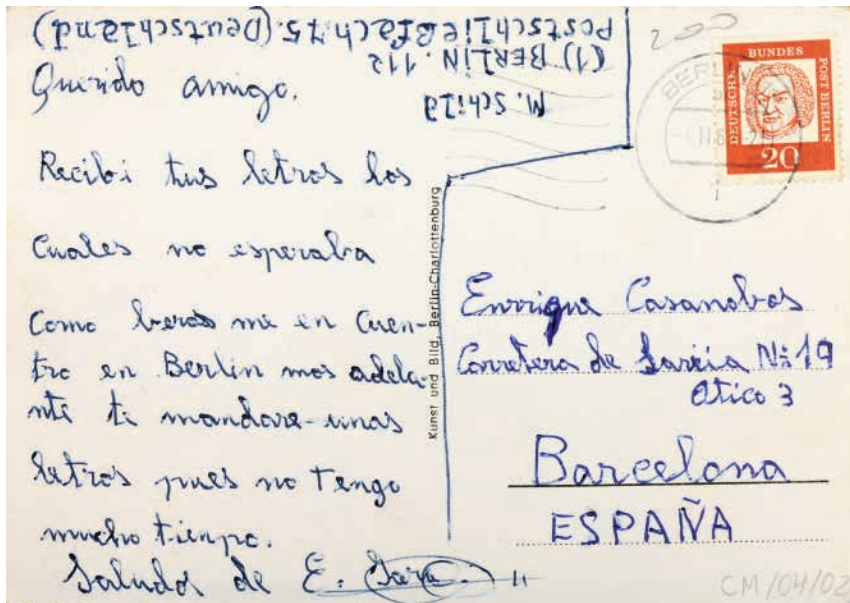 M. Schild
(1) BERLIN. 112
Postschließfach 75. (Deutschland)
Querido amigo.
Recibi tus letras las
cuales no esperaba
Como beras me en cuen-
tro en Berlin mas adela-
nte te mandare-unas
letras pues no tengo
mucho tienpo.
Saludos de E.
Kunst und Bild, Berlin-Charlottenburg
200
DEUTSCHE BUNDES POST BERLIN
20
BERLIN
1
Enrique Casanobas
Carretera de Sarria Nº 19
Atico 3
Barcelona
ESPAÑA
CM/04/02